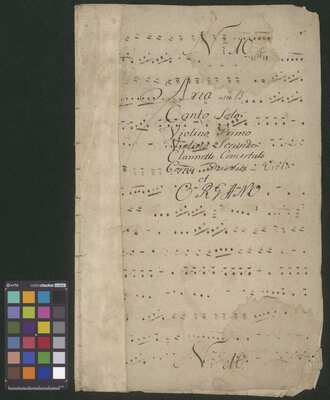 V M
Aria
Canto Solo
Violino Primo
Violino Secundo
Clarinetto Concertato
et
ORGANO
V M